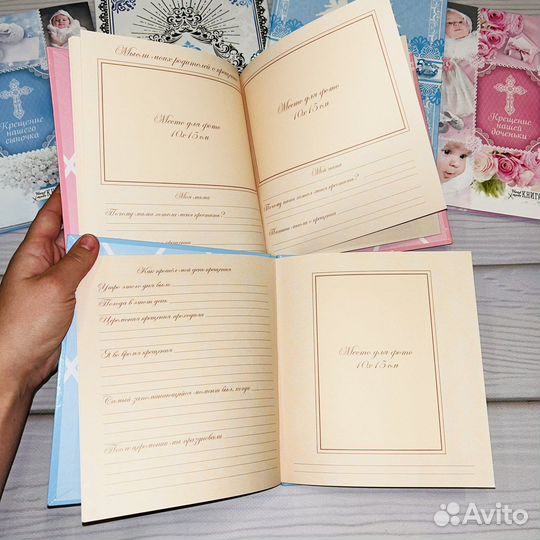 Крещение
нашего
сыночка
Крещение
нашей
доченьки
КНИГА
Мысли моих родителей о крещении
Место для фото
10х15 см
Место для фото
10х15 см
Моя мама
Почему мама хотела меня крестить?
Мой папа
Почему папа хотел меня крестить?
Как прошёл мой день крещения
Утро этого дня было
Погода в этот день
Церемония крещения проходила
Я во время крещения
Самый запоминающийся момент был, когда
После церемонии мы праздновали
Место для фото
10х15 см
Avito